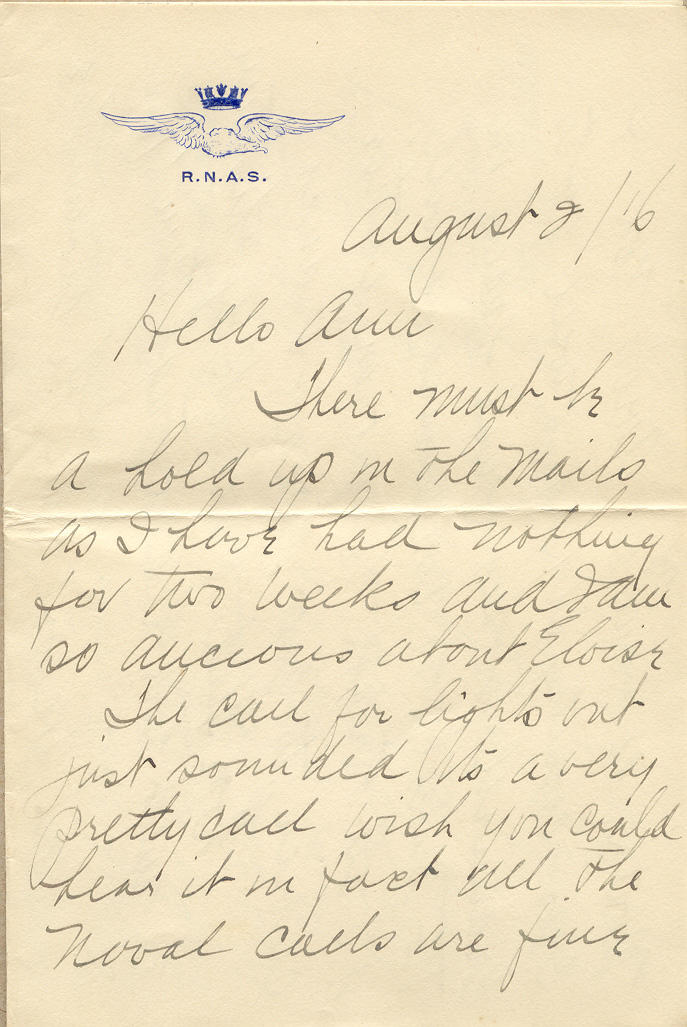 R.N.A.S.
August 2/16
Hello Ann
There must be
a hold up in the mails
as I have had nothing
for two weeks and I am
so ancious about Eloise
The call for lights out
just sounded its a very
pretty call wish you could
hear it in fact all the
Naval calls are fine